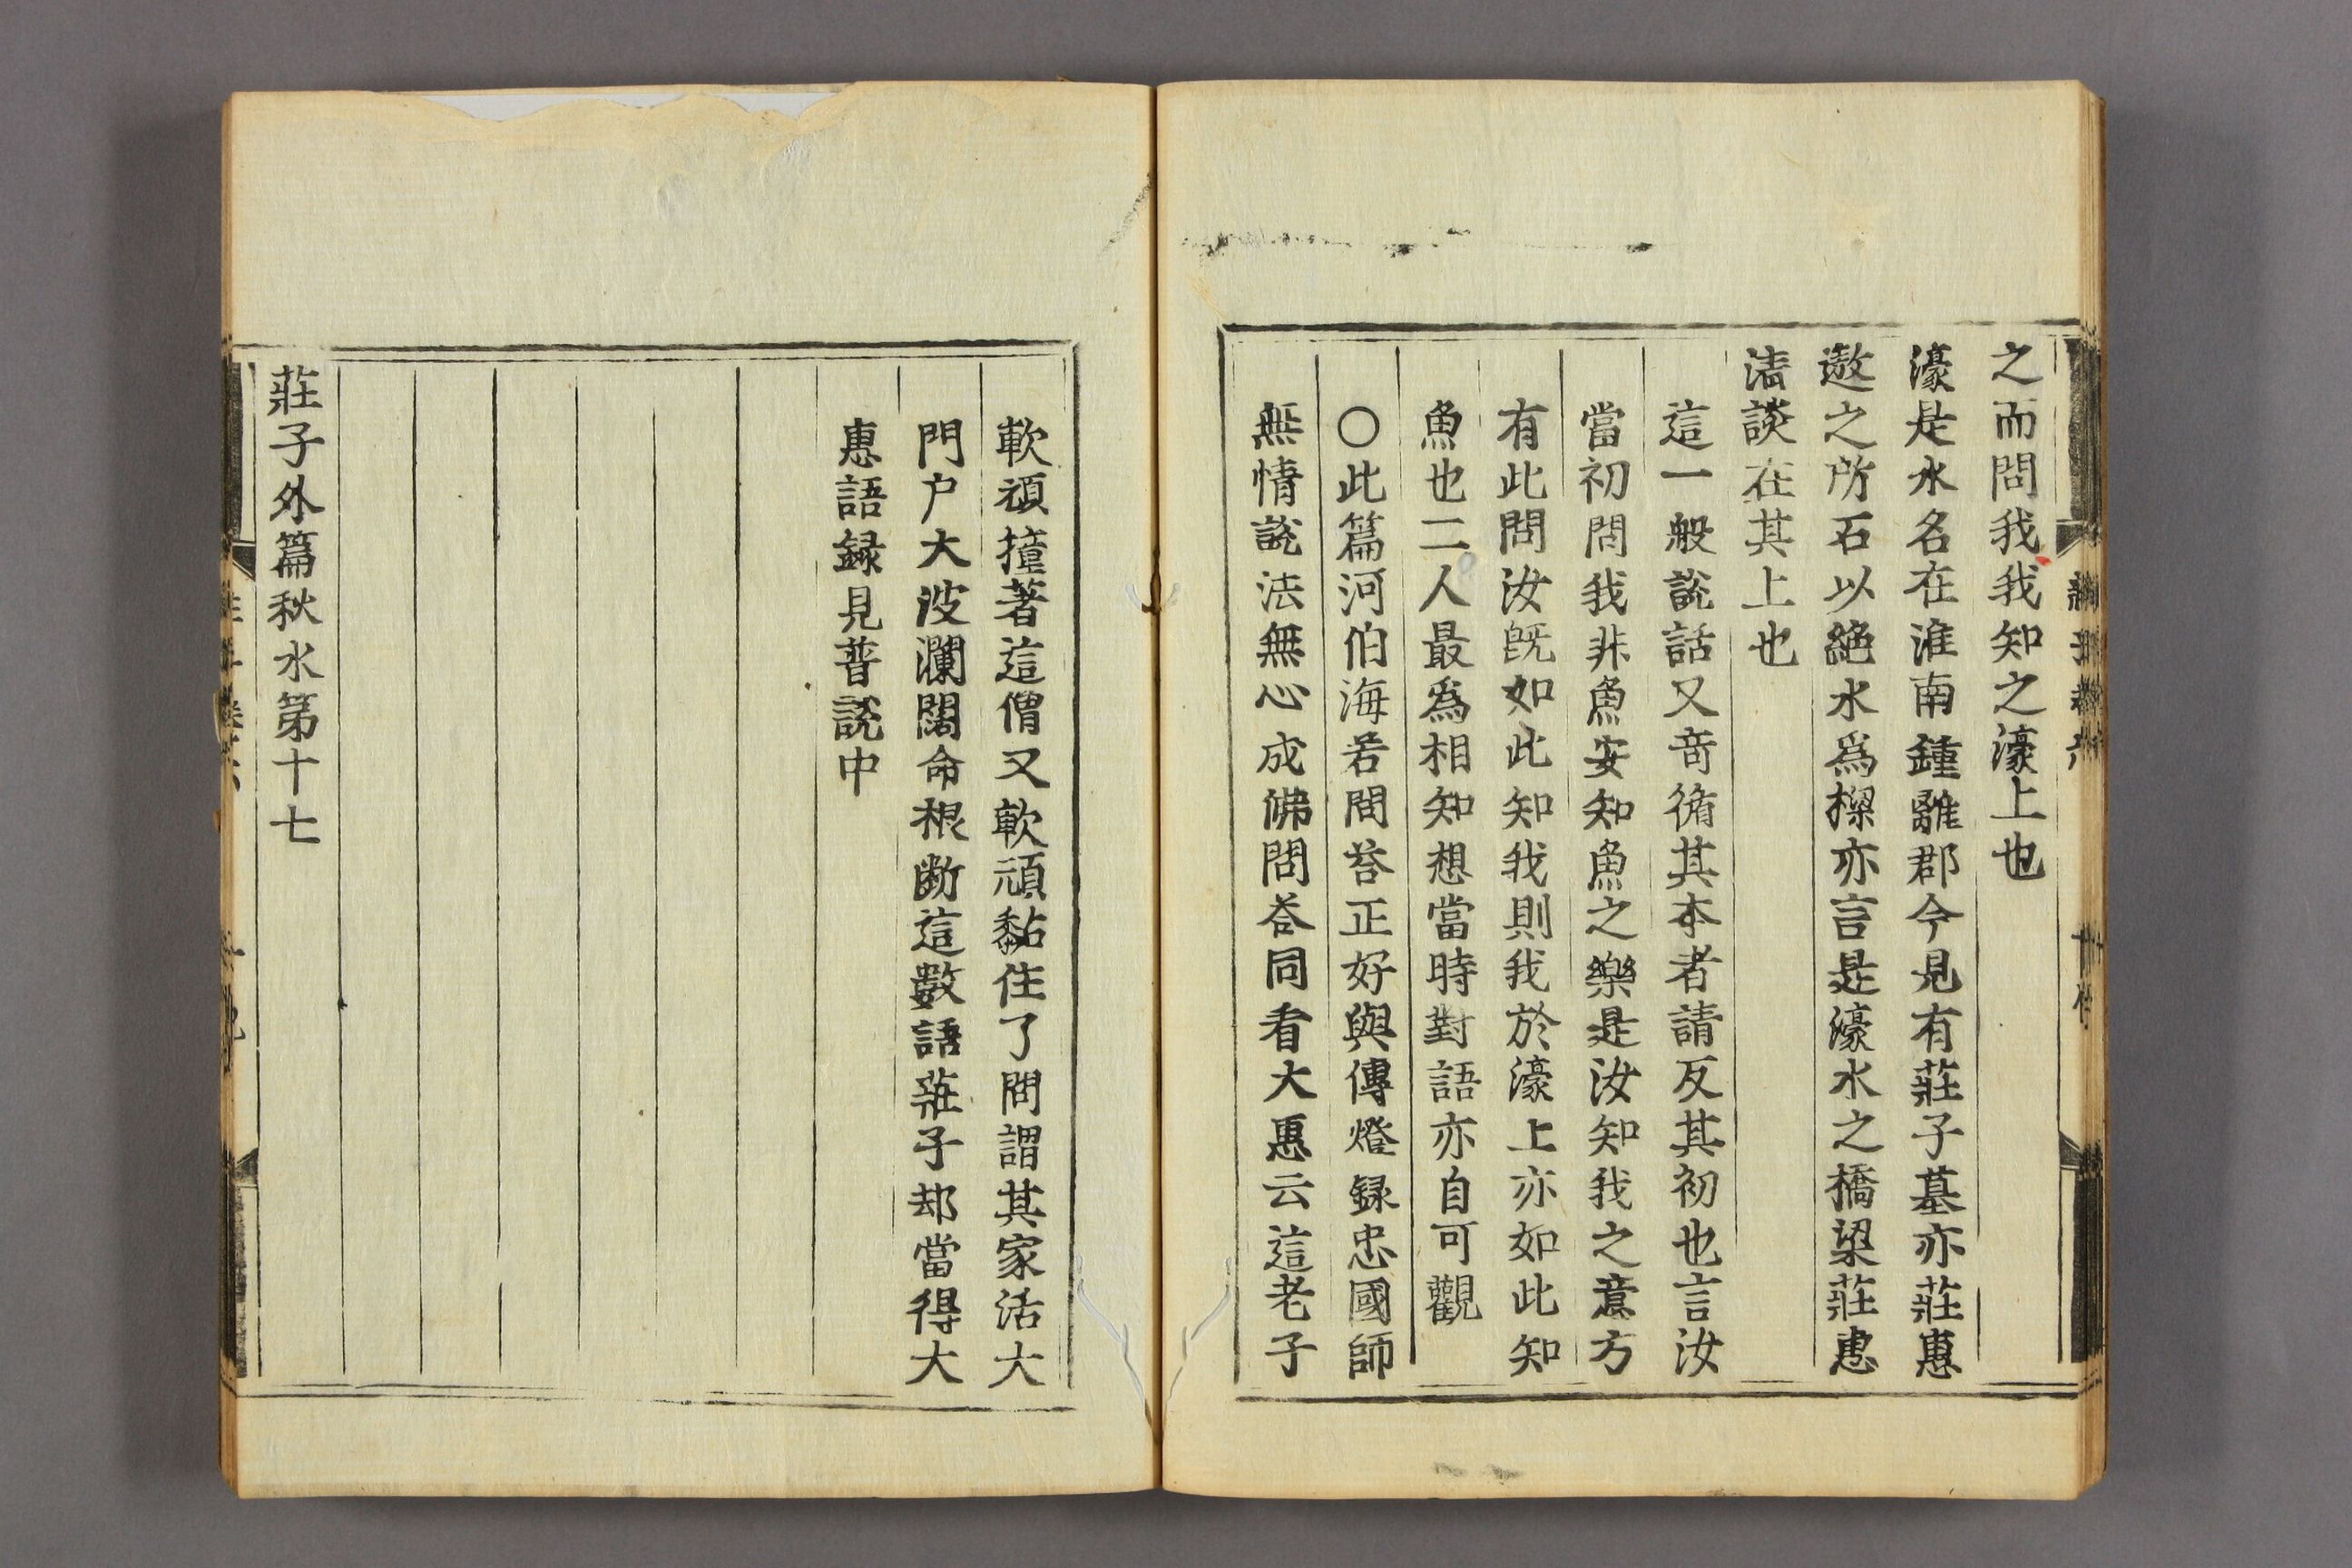 之而問我我知之濠上也
濠是水名在淮南鍾離郡今見有莊子墓亦莊惠
遨之所石以絶水爲樑亦言是濠水之橋梁莊惠
清談在其上也
這一般說話又奇循其本者請反其初也言汝
當初問我非魚安知魚之樂是汝知我之意方
有此問汝旣如此知我則我於濠上亦如此知
魚也二人最爲相知想當時對語亦自可觀
○此篇河伯海若問荅正好與傳燈録忠國師
無情說法無心成佛問荅同看大惠云這老子
軟頑撞著這僧又軟頑黏住了問謂其家活大
門户大波瀾闊命根斷這數語莊子却當得大
惠語録見普說中
莊子外篇秋水第十七